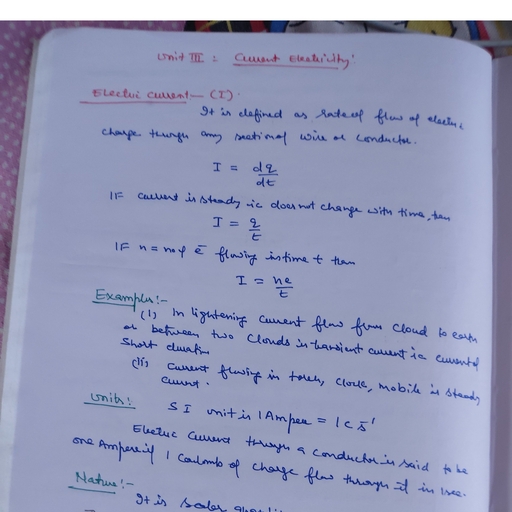 Unit III : Current Electricity
Electric current – (I)
It is defined as rate of flow of electric
charge through any section of wire or conductor.
I = dq/dt
IF current is steady ie does not change with time, then
I = q/t
IF n = no of e⁻ flowing in time t then
I = ne/t
Examples:-
(i) In lightening current flow from cloud to earth
or between two clouds is transient current ie current of
short duration
(ii) current flowing in torch, clock, mobile is steady
current.
Units:
S I unit is 1 Ampere = 1 C s⁻¹
Electric current through a conductor is said to be
one Ampere if 1 Coulomb of charge flow through it in 1 sec.
Nature:-
It is scalar